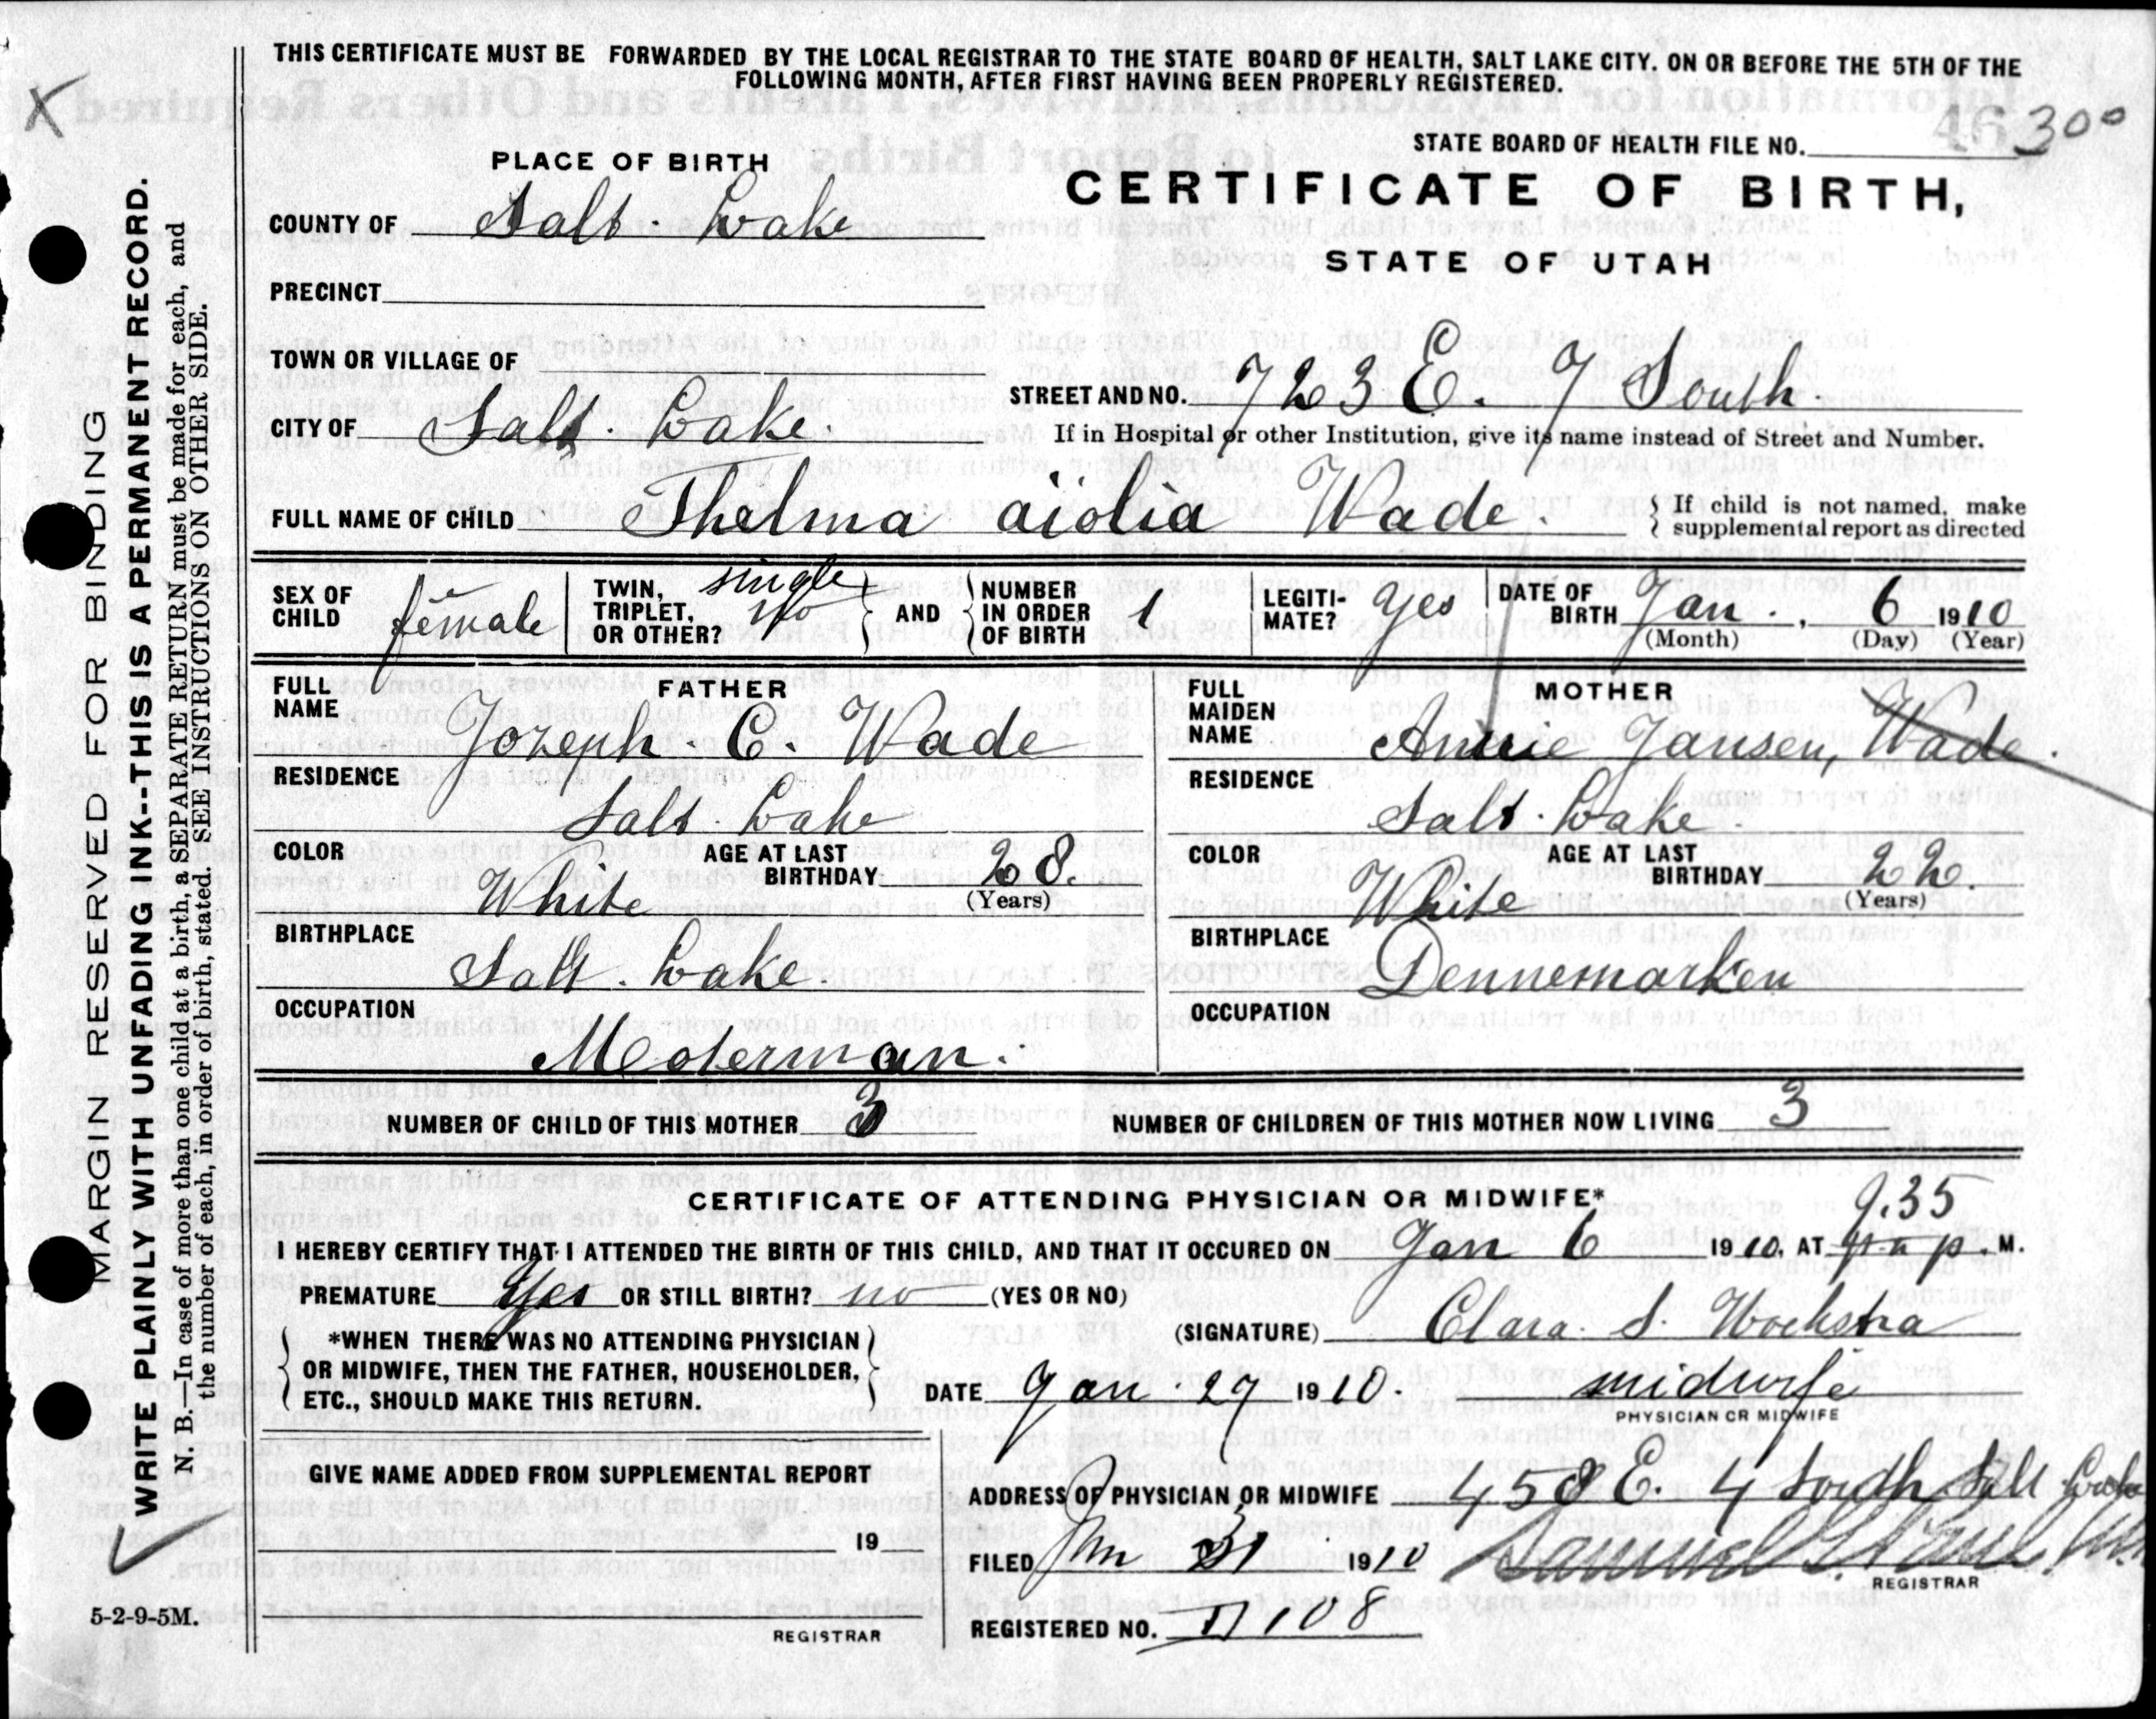 THIS CERTIFICATE MUST BE FORWARDED BY THE LOCAL REGISTRAR TO THE STATE BOARD OF HEALTH, SALT LAKE CITY. ON OR BEFORE THE 5TH OF THE
FOLLOWING MONTH, AFTER FIRST HAVING BEEN PROPERLY REGISTERED.
X
STATE BOARD OF HEALTH FILE NO. 46 300
PLACE OF BIRTH
CERTIFICATE OF BIRTH,
COUNTY OF Salt. Lake
STATE OF UTAH
PRECINCT
TOWN OR VILLAGE OF
STREET AND NO. 723 E. 7 South
CITY OF Salt. Lake.
If in Hospital or other Institution, give its name instead of Street and Number.
FULL NAME OF CHILD Thelma aiolia Wade.
If child is not named, make
supplemental report as directed
SEX OF CHILD female
TWIN, TRIPLET, OR OTHER? single no
AND NUMBER IN ORDER OF BIRTH 1
LEGITI-MATE? yes
DATE OF BIRTH Jan. , 6 1910
(Month) (Day) (Year)
FATHER
FULL NAME Jozeph. C. Wade
RESIDENCE
Salt. Lake
COLOR White
AGE AT LAST BIRTHDAY 28.
(Years)
BIRTHPLACE
Salt. Lake.
OCCUPATION
Moterman.
MOTHER
FULL MAIDEN NAME Annie Jansen, Wade.
RESIDENCE
Salt. Lake.
COLOR White
AGE AT LAST BIRTHDAY 22.
(Years)
BIRTHPLACE
Dennemarken
OCCUPATION
NUMBER OF CHILD OF THIS MOTHER 3
NUMBER OF CHILDREN OF THIS MOTHER NOW LIVING 3
CERTIFICATE OF ATTENDING PHYSICIAN OR MIDWIFE*
9.35
I HEREBY CERTIFY THAT I ATTENDED THE BIRTH OF THIS CHILD, AND THAT IT OCCURED ON Jan 6 1910, AT p. M.
PREMATURE Yes OR STILL BIRTH? no (YES OR NO)
*WHEN THERE WAS NO ATTENDING PHYSICIAN
OR MIDWIFE, THEN THE FATHER, HOUSEHOLDER,
ETC., SHOULD MAKE THIS RETURN.
(SIGNATURE) Clara. S. Hoekstra
DATE Jan. 29 1910.
midwife
PHYSICIAN OR MIDWIFE
GIVE NAME ADDED FROM SUPPLEMENTAL REPORT
19
REGISTRAR
ADDRESS OF PHYSICIAN OR MIDWIFE 458 E. 4 South Salt Lake
FILED Jan 31 1910 Samuel G. Paul
REGISTRAR
REGISTERED NO. 108
MARGIN RESERVED FOR BINDING
WRITE PLAINLY WITH UNFADING INK--THIS IS A PERMANENT RECORD.
N. B.—In case of more than one child at a birth, a SEPARATE RETURN must be made for each, and
the number of each, in order of birth, stated. SEE INSTRUCTIONS ON OTHER SIDE.
5-2-9-5M.